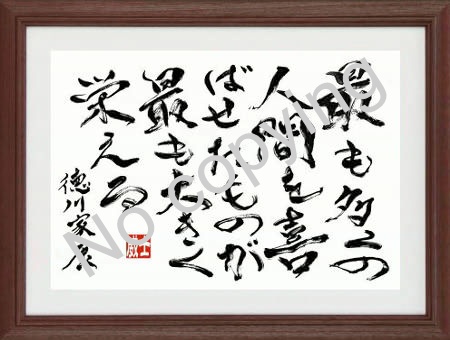 最も多くの
人間を喜
ばせたものが
最も大きく
栄える
徳川家康
No copying